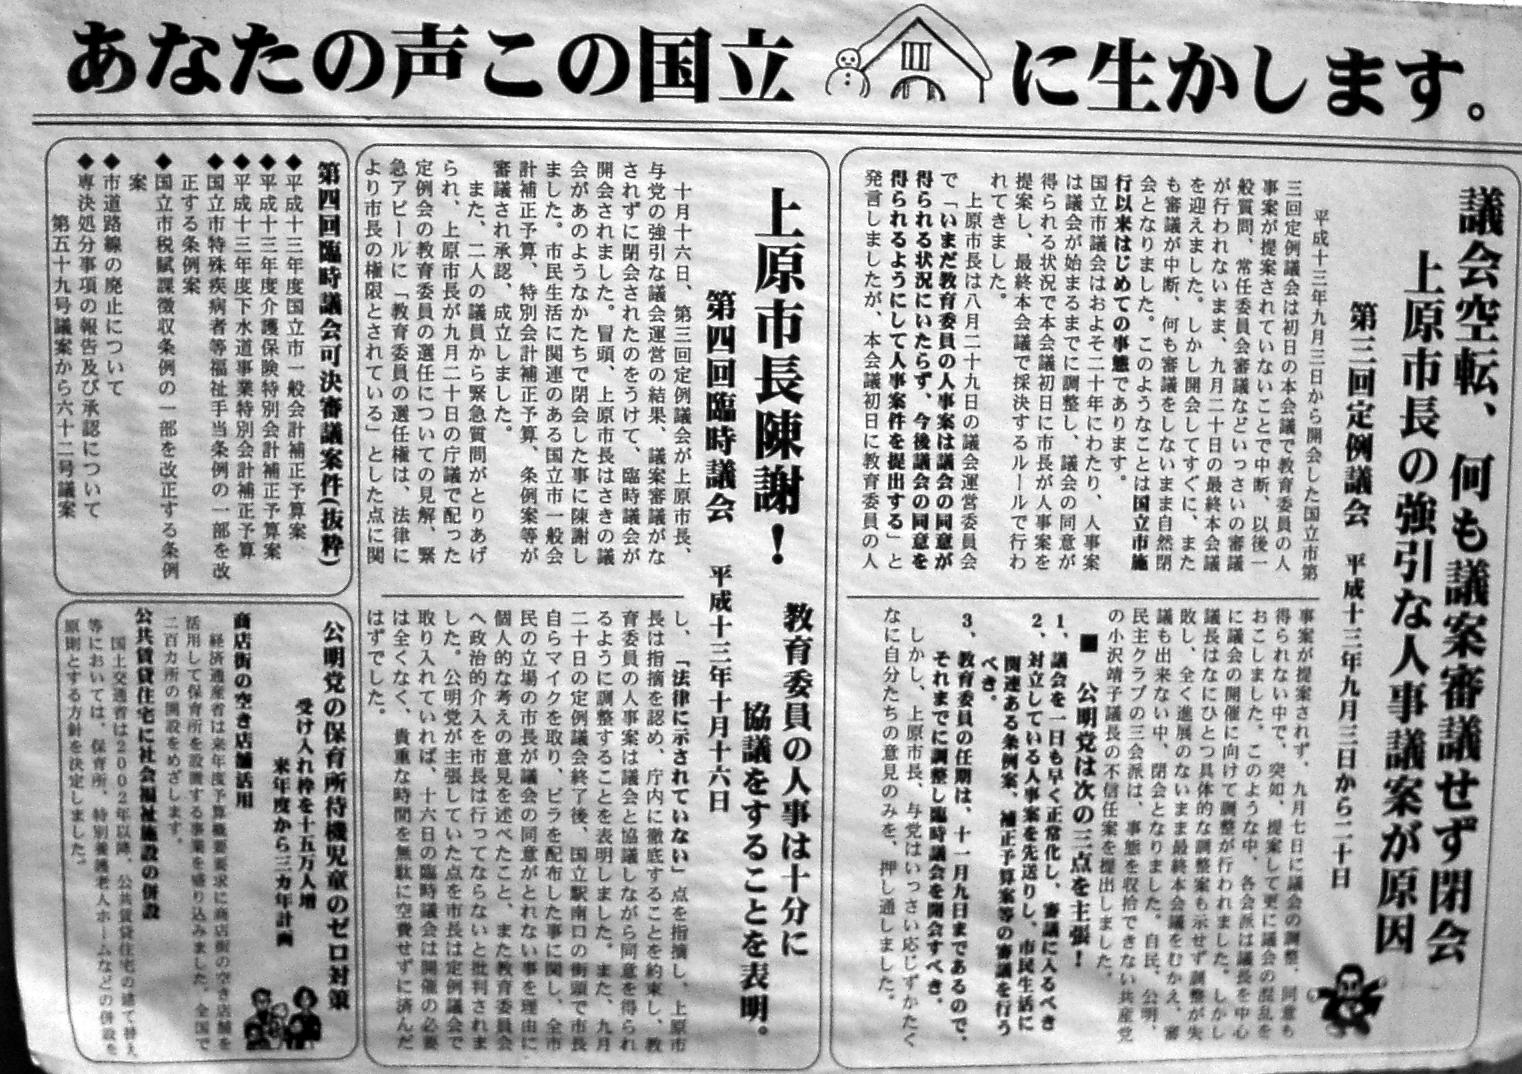 あなたの声この国立に生かします。
議会空転、何も議案審議せず閉会
上原市長の強引な人事議案が原因
第三回定例議会　平成十三年九月三日から二十日
平成十三年九月三日から開会した国立市第
三回定例議会は初日の本会議で教育委員の人
事案が提案されていないことで中断、以後一
般質問、常任委員会審議などいっさいの審議
が行われないまま、九月二十日の最終本会議
を迎えました。しかし開会してすぐに、また
も審議が中断、何も審議をしないまま自然閉
会となりました。このようなことは国立市施
行以来はじめての事態であります。
国立市議会はおよそ二十年にわたり、人事案
は議会が始まるまでに調整し、議会の同意が
得られる状況で本会議初日に市長が人事案を
提案し、最終本会議で採決するルールで行わ
れてきました。
上原市長は八月二十九日の議会運営委員会
で「いまだ教育委員の人事案は議会の同意が
得られる状況にいたらず、今後議会の同意を
得られるようにして人事案件を提出する」と
発言しましたが、本会議初日に教育委員の人
事案が提案されず、九月七日に議会の調整、同意も
得られない中で、突如、提案して更に議会の混乱を
おこしました。このような中、各会派は議長を中心
に議会の開催に向けて調整が行われました。しかし
議長はなにひとつ具体的な調整案も示せず調整が失
敗し、全く進展のないまま最終本会議をむかえ、審
議も出来ない中、閉会となりました。自民、公明、
民主クラブの三会派は、事態を収拾できない共産党
の小沢靖子議長の不信任案を提出しました。
■　公明党は次の三点を主張！
1、議会を一日も早く正常化し、審議に入るべき
2、対立している人事案を先送りし、市民生活に
関連ある条例案、補正予算案等の審議を行う
べき。
3、教育委員の任期は、十一月九日まであるので、
それまでに調整し臨時議会を開会すべき。
しかし、上原市長、与党はいっさい応じずかたく
なに自分たちの意見のみを、押し通しました。
上原市長陳謝！
教育委員の人事は十分に
協議をすることを表明。
第四回臨時議会　平成十三年十月十六日
十月十六日、第三回定例議会が上原市長、
与党の強引な議会運営の結果、議案審議がな
されずに閉会されたのをうけて、臨時議会が
開会されました。冒頭、上原市長はさきの議
会があのようなかたちで閉会した事に陳謝し
ました。市民生活に関連のある国立市一般会
計補正予算、特別会計補正予算、条例案等が
審議され承認、成立しました。
また、二人の議員から緊急質問がとりあげ
られ、上原市長が九月二十日の庁議で配った
定例会の教育委員の選任についての見解、緊
急アピールに「教育委員の選任権は、法律に
より市長の権限とされている」とした点に関
し、「法律に示されていない」点を指摘し、上原市
長は指摘を認め、庁内に徹底することを約束し、教
育委員の人事案は議会と協議しながら同意を得られ
るように調整することを表明しました。また、九月
二十日の定例議会終了後、国立駅南口の街頭で市長
自らマイクを取り、ビラを配布した事に関し、全市
民の立場の市長が議会の同意がとれない事を理由に
個人的な考えの意見を述べたこと、また教育委員会
へ政治的介入を市長は行ってならないと批判されま
した。公明党が主張していた点を市長は定例議会で
取り入れていれば、十六日の臨時議会は開催の必要
は全くなく、貴重な時間を無駄に空費せずに済んだ
はずでした。
第四回臨時議会可決審議案件(抜粋)
◆平成十三年度国立市一般会計補正予算案
◆平成十三年度介護保険特別会計補正予算案
◆平成十三年度下水道事業特別会計補正予算
◆国立市特殊疾病者等福祉手当条例の一部を改
正する条例案
◆国立市税賦課徴収条例の一部を改正する条例
案
◆市道路線の廃止について
◆専決処分事項の報告及び承認について
第五十九号議案から六十二号議案
公明党の保育所待機児童のゼロ対策
受け入れ枠を十五万人増
来年度から三カ年計画
商店街の空き店舗活用
経済通産省は来年度予算概要要求に商店街の空き店舗を
活用して保育所を設置する事業を盛り込みました。全国で
二百カ所の開設をめざします。
公共賃貸住宅に社会福祉施設の併設
国土交通省は2002年以降、公共賃貸住宅の建て替え
等においては、保育所、特別養護老人ホームなどの併設を
原則とする方針を決定しました。